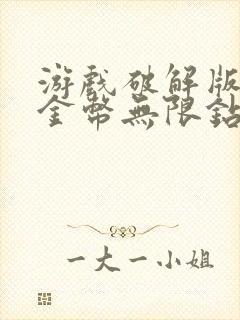 游戲破解版
金幣無限鉆
一大一小姐